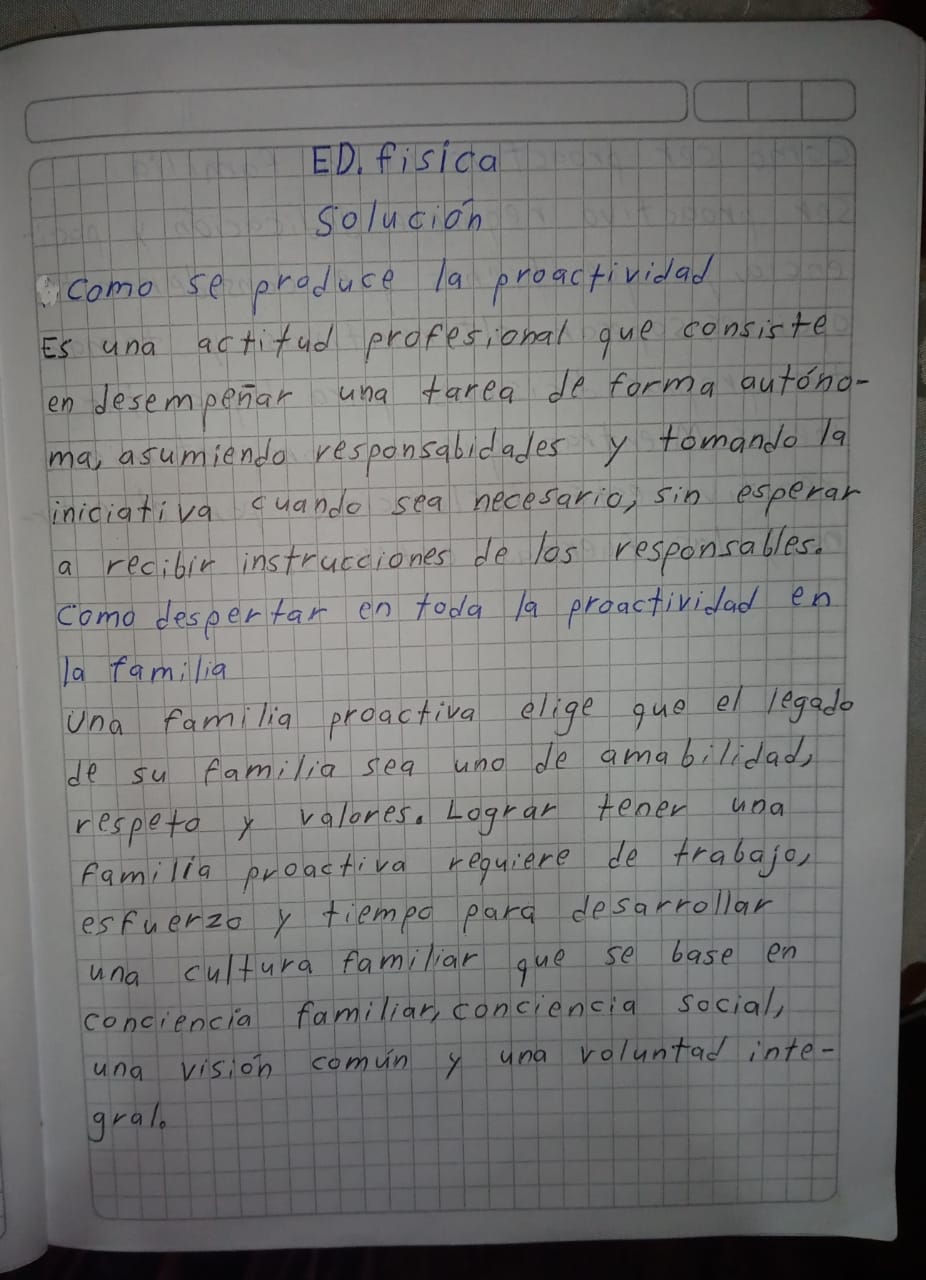 ED. fisica
Solución
Como se produce la proactividad
Es una actitud profesional que consiste
en desempeñar una tarea de forma autóno-
ma, asumiendo responsabidades y tomando la
iniciativa cuando sea necesario, sin esperar
a recibir instrucciones de los responsables.
Como despertar en toda la proactividad en
la familia
Una familia proactiva elige que el legado
de su familia sea uno de amabilidad,
respeto y valores. Lograr tener una
familia proactiva requiere de trabajo,
esfuerzo y tiempo para desarrollar
una cultura familiar que se base en
conciencia familiar, conciencia social,
una visión común y una voluntad inte-
gral.